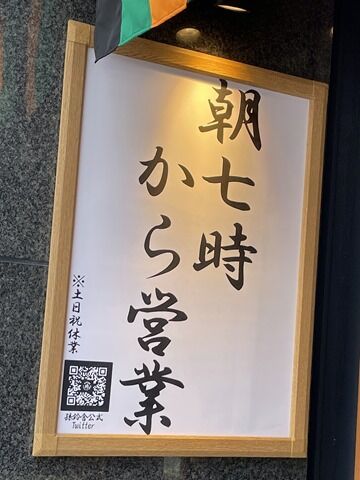 朝七時
から営業
※土日祝休業
孫鈴舎公式
Twitter